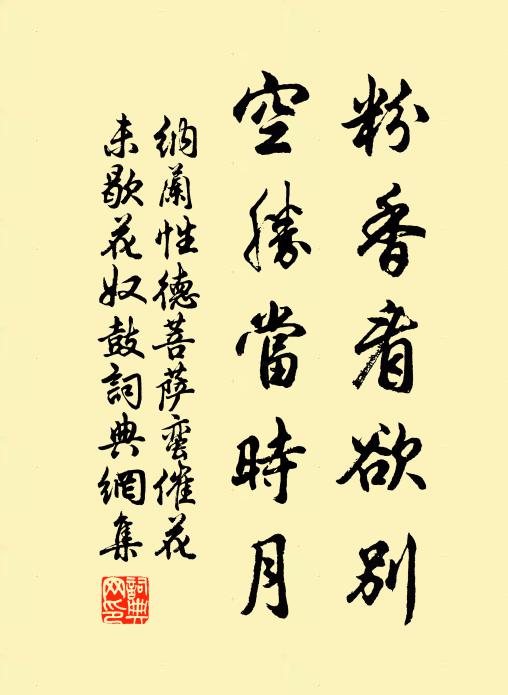 粉香看欲別
空勝當時月
納蘭性德菩薩蠻催花
未歇花奴鼓詞典網集
詞典
網印